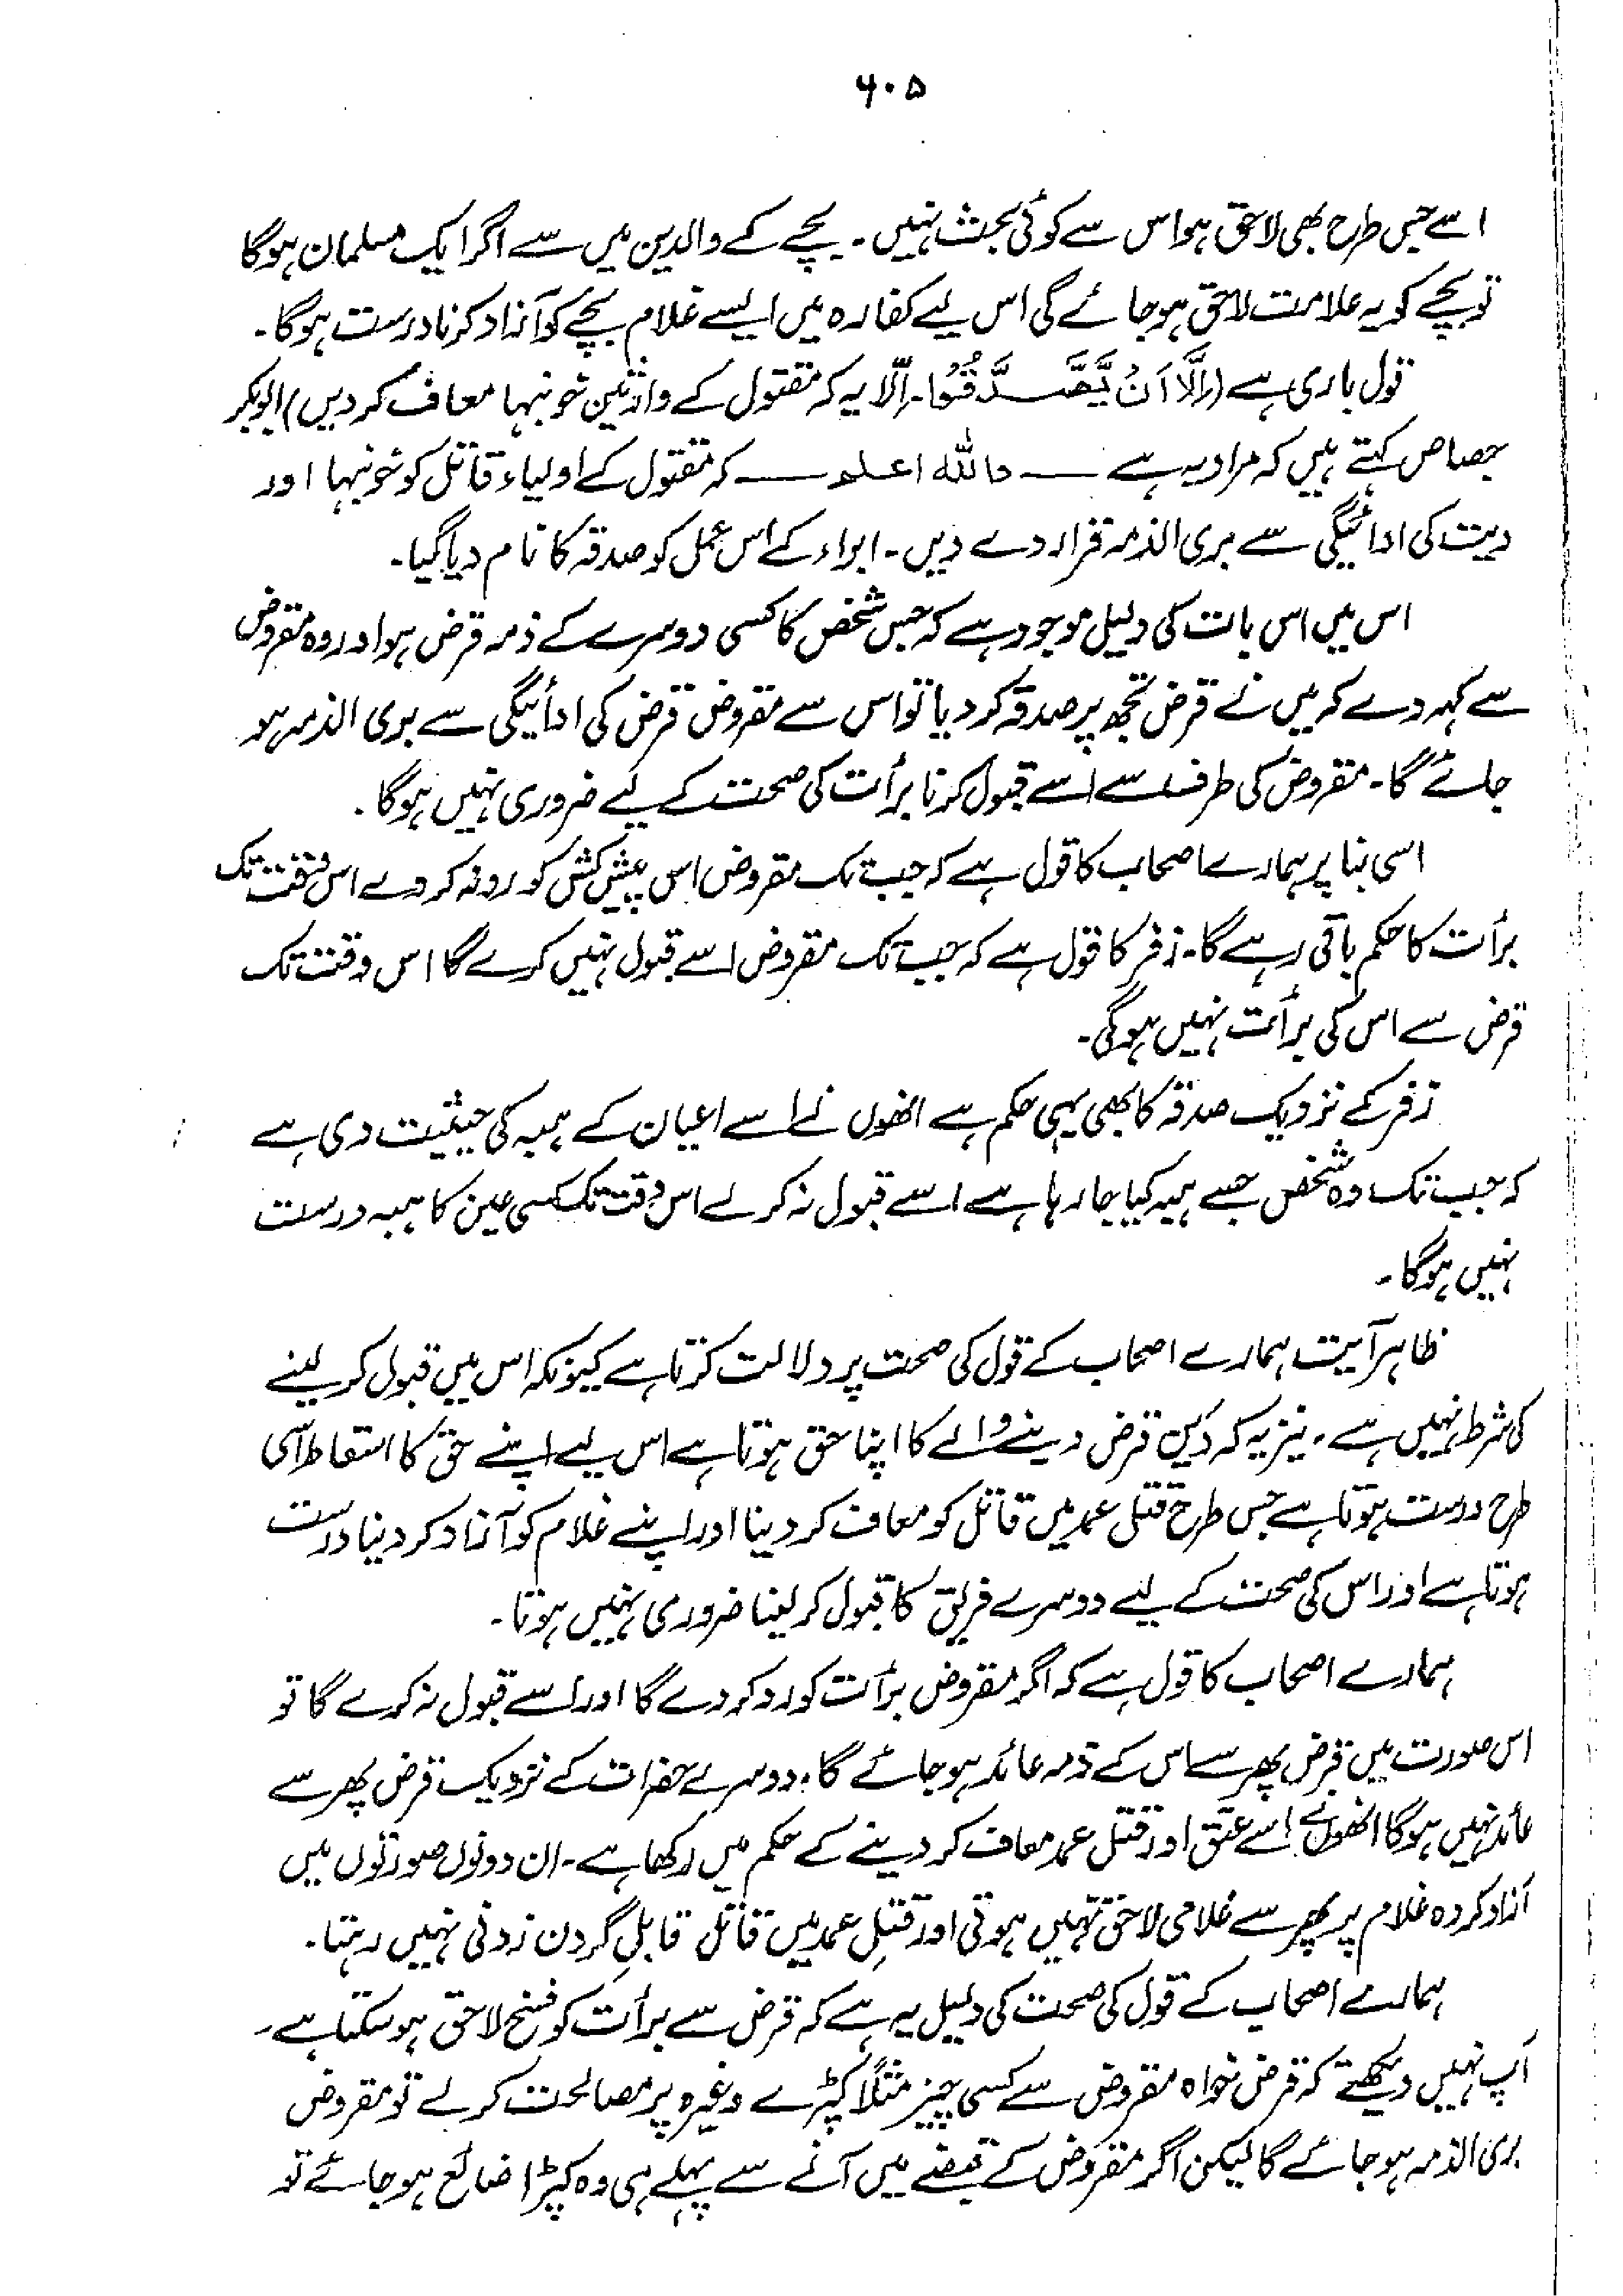 ۶۰۵
اسے جس طرح بھی لاحق ہو اس سے کوئی بحث نہیں۔ بچے کے والدین میں سے اگر ایک مسلمان ہوگا
تو بچے کو یہ علامت لاحق ہو جائے گی اس لیے کفارہ میں ایسے غلام بچے کو آزاد کرنا درست ہوگا۔
قول باری ہے (اِلَّا اَنْ یَّصَّدَّقُوْا۔ اِلّا یہ کہ مقتول کے وارثین خونبہا معاف کر دیں) ابوبکر
جصاص کہتے ہیں کہ مراد یہ ہے —— واللہ اعلم —— کہ مقتول کے اولیاء قاتل کو خونبہا اور
دیت کی ادائیگی سے بری الذمہ قرار دے دیں۔ ابراء کے اس عمل کو صدقہ کا نام دیا گیا۔
اس میں اس بات کی دلیل موجود ہے کہ جس شخص کا کسی دوسرے کے ذمہ قرض ہو اور وہ مقروض
سے کہہ دے کہ میں نے قرض تجھ پر صدقہ کر دیا تو اس سے مقروض قرض کی ادائیگی سے بری الذمہ ہو
جائے گا۔ مقروض کی طرف سے اسے قبول کرنا برأت کی صحت کے لیے ضروری نہیں ہوگا۔
اسی بنا پر ہمارے اصحاب کا قول ہے کہ جب تک مقروض اس پیش کش کو رد نہ کر دے اس وقت تک
برأت کا حکم باقی رہے گا۔ زفر کا قول ہے کہ جب تک مقروض اسے قبول نہیں کرے گا اس وقت تک
قرض سے اس کی برأت نہیں ہوگی۔
زفر کے نزدیک صدقہ کا بھی یہی حکم ہے انھوں نے اسے اعیان کے ہبہ کی حیثیت دی ہے
کہ جب تک وہ شخص جسے ہبہ کیا جا رہا ہے اسے قبول نہ کرلے اس وقت تک کسی عین کا ہبہ درست
نہیں ہوگا۔
ظاہر آیت ہمارے اصحاب کے قول کی صحت پر دلالت کرتا ہے کیونکہ اس میں قبول کر لینے
کی شرط نہیں ہے۔ نیز یہ کہ دَین قرض دینے والے کا اپنا حق ہوتا ہے اس لیے اپنے حق کا اسقاط اسی
طرح درست ہوتا ہے جس طرح قتل عمد میں قاتل کو معاف کر دینا اور اپنے غلام کو آزاد کر دینا درست
ہوتا ہے اور اس کی صحت کے لیے دوسرے فریق کا قبول کر لینا ضروری نہیں ہوتا۔
ہمارے اصحاب کا قول ہے کہ اگر مقروض برأت کو رد کر دے گا اور اسے قبول نہ کرے گا تو
اس صورت میں قرض پھر سے اس کے ذمہ عائد ہو جائے گا۔ دوسرے حضرات کے نزدیک قرض پھر سے
عائد نہیں ہوگا انھوں نے اسے عتق اور قتل عمد معاف کر دینے کے حکم میں رکھا ہے۔ ان دونوں صورتوں میں
آزاد کردہ غلام پر پھر سے غلامی لاحق نہیں ہوتی اور قتلِ عمد میں قاتل قابلِ گردن زدنی نہیں رہتا۔
ہمارے اصحاب کے قول کی صحت کی دلیل یہ ہے کہ قرض سے برأت کو فسخ لاحق ہو سکتا ہے۔
آپ نہیں دیکھتے کہ قرض خواہ مقروض سے کسی چیز مثلاً کپڑے وغیرہ پر مصالحت کر لے تو مقروض
بری الذمہ ہو جائے گا لیکن اگر مقروض کے قبضے میں آنے سے پہلے ہی وہ کپڑا ضائع ہو جائے تو